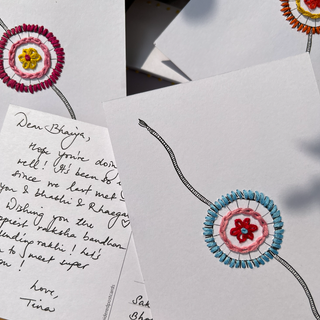 Dear Bhaiya,
Hope you're doing
well! It's been so
since we last met
you & bhabhi & Rhaegar
Wishing you the
happiest raksha bandhan
sending rakhi! Let's
to meet super
you!
Love,
Tina
Sak
Bha